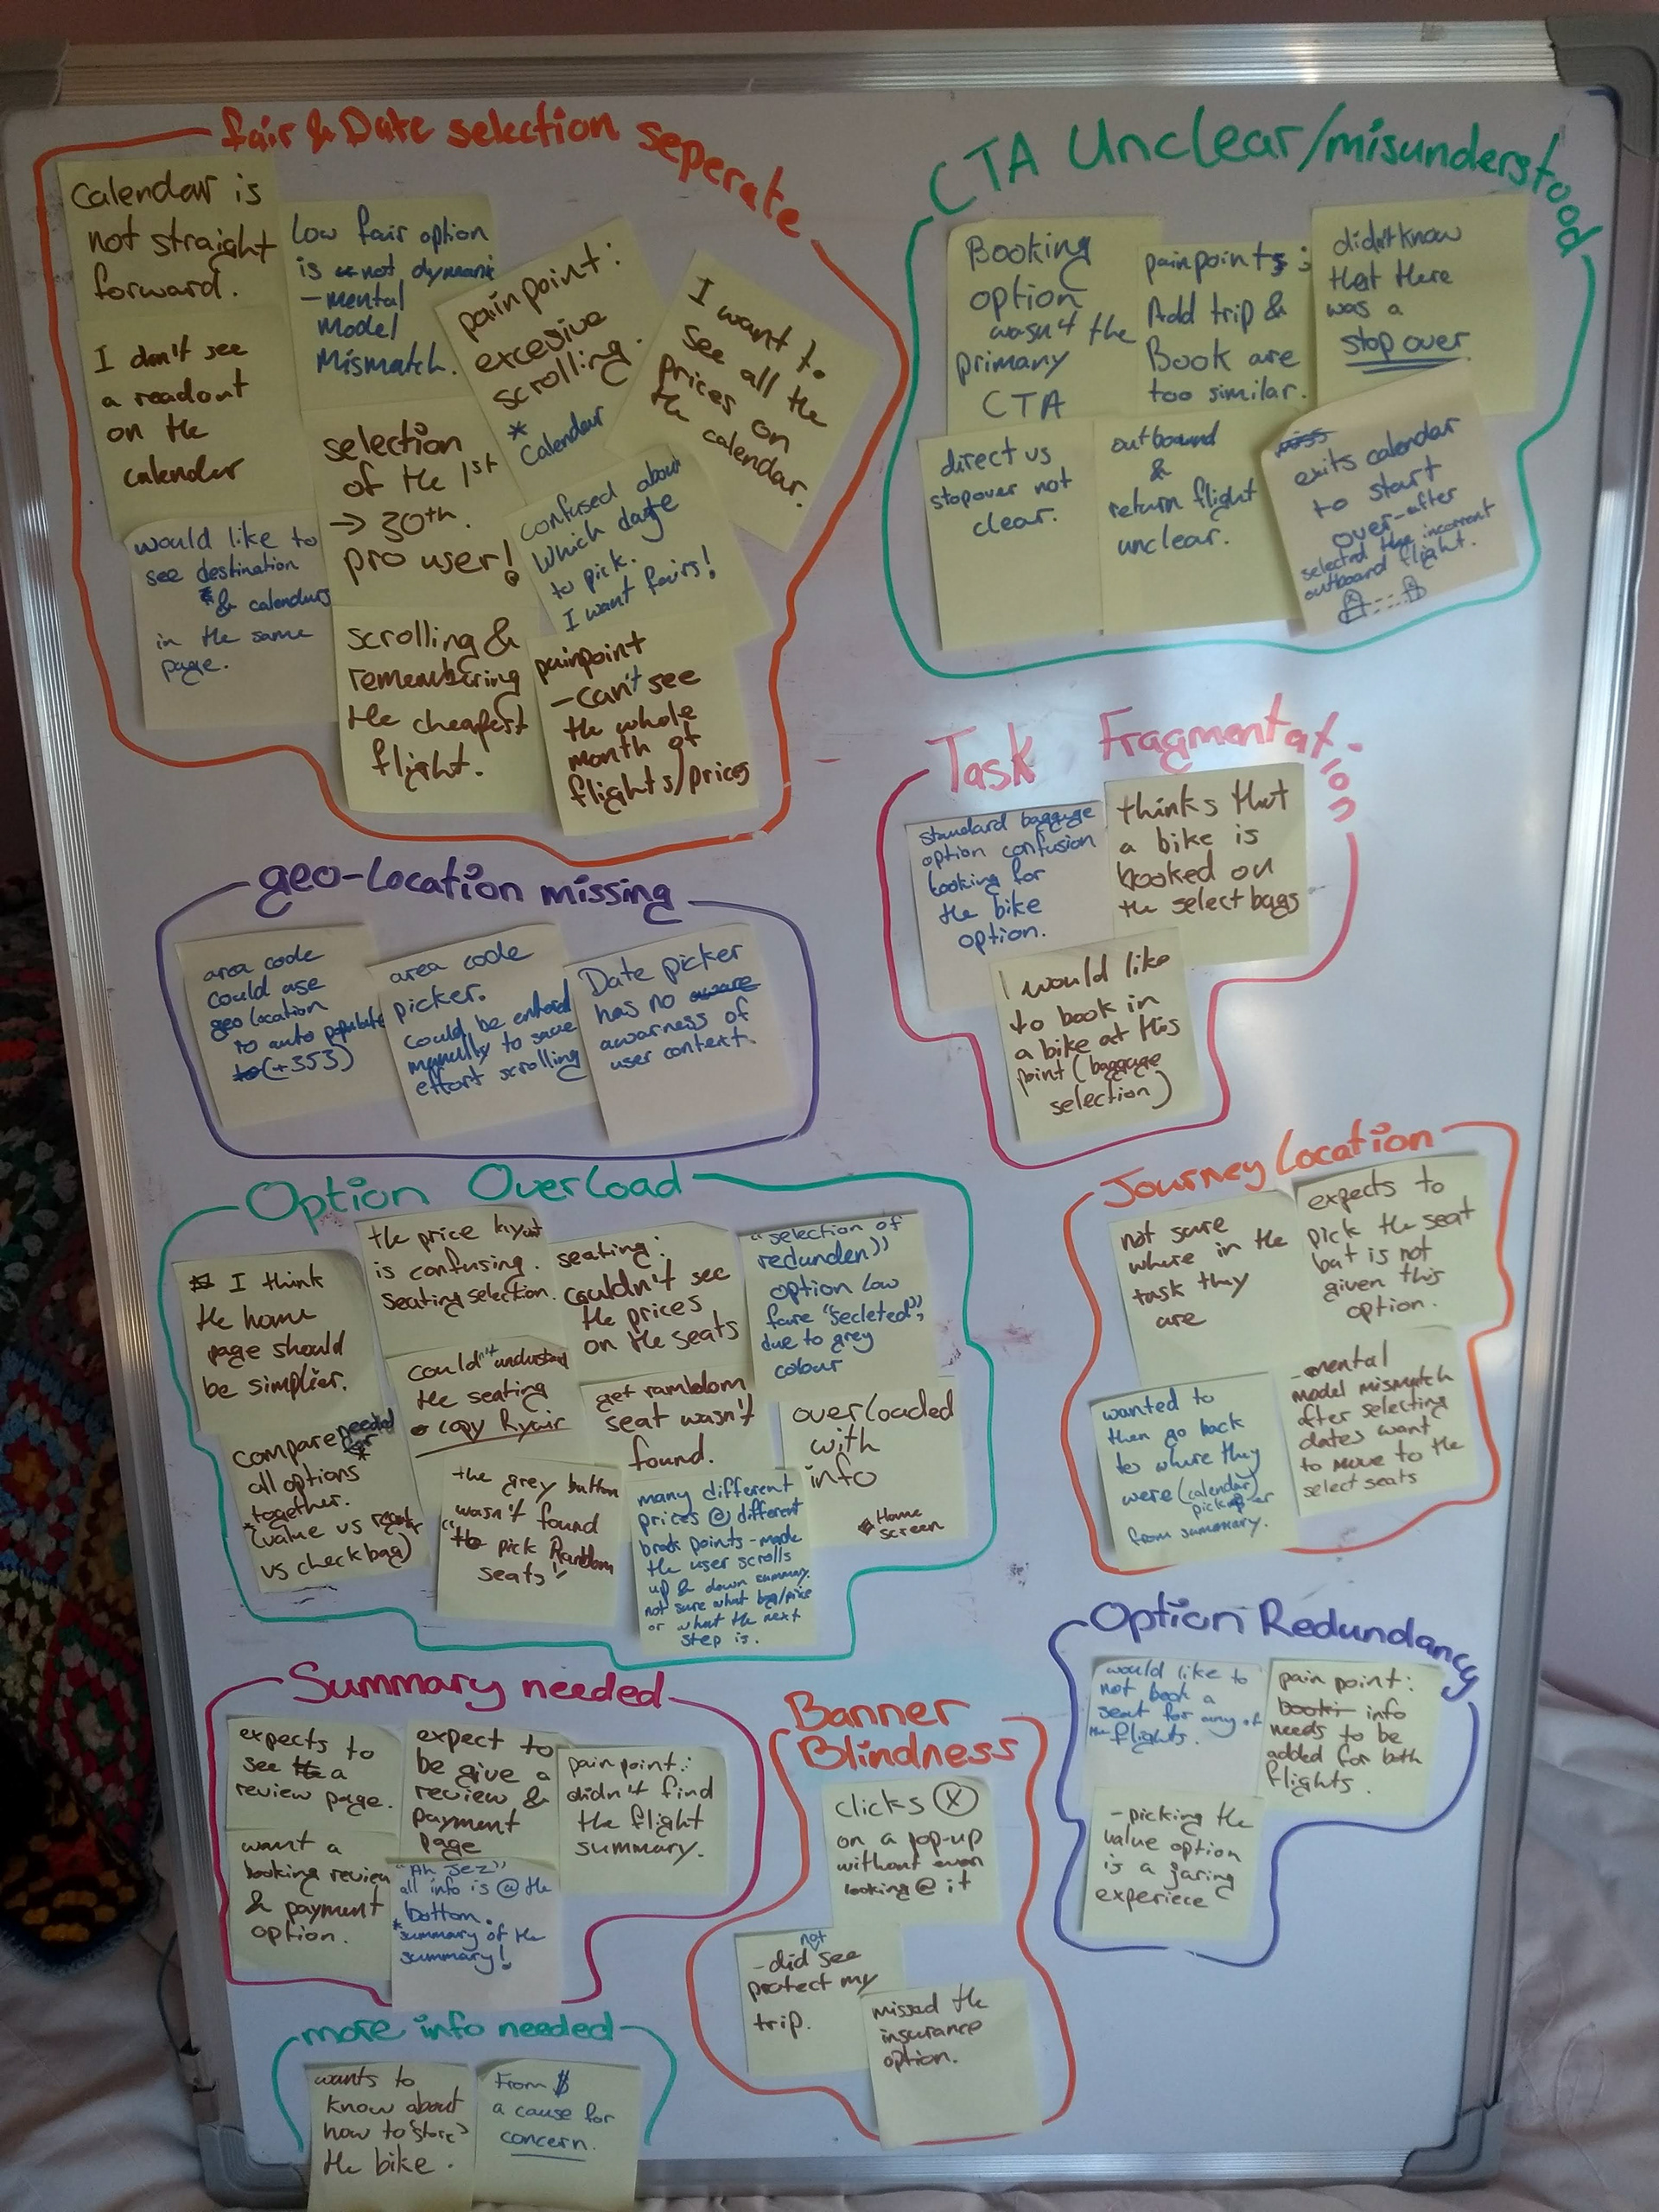 fair & Date selection seperate
Calendar is
not straight
forward.
low fair option
is not dynamic
- mental
model
Mismatch.
painpoint:
excesive
scrolling.
*
Calendar
I want to
see all the
prices on
the calendar.
I don't see
a readout
on the
calendar
selection
of the 1st
→ 30th.
pro user!
confused about
which date
to pick.
I want fairs!
would like to
see destination
& calendars
in the same
page.
scrolling &
remembering
the cheapest
flight.
painpoint
- can't see
the whole
month of
flights/prices
CTA Unclear/misunderstood
Booking
option
wasn't the
primary
CTA
painpoints:
Add trip &
Book are
too similar.
didn't know
that there
was a
stop over
direct us
stopover not
clear.
outbound
&
return flight
unclear.
exits calendar
to start
over-after
selected the incorrect
outboard flight.
Task Fragmentation
standard baggage
option confusion
looking for
the bike
option.
thinks that
a bike is
booked on
the select bags
I would like
to book in
a bike at this
point (baggage
selection)
geo-location missing
area code
could use
geo location
to auto populate
to (+353)
area code
picker.
could be entered
manually to save
effort scrolling
Date picker
has no aware
awarness of
user context.
Option Overload
I think
the home
page should
be simplier.
the price layout
is confusing.
seating selection.
seating:
couldn't see
the prices
on the seats
"selection of
redunden"
option low
fare "secleted",
due to grey
colour
could't understand
the seating
copy Ryair
get rambdom
seat wasn't
found.
overloaded
with
info
Home
screen
compare needed
for *
all options
together.
*(value vs
vs check bag)
the grey button
wasn't found
"to pick Random
seats"
many different
prices @ different
break points - made
the user scrolls
up & down summary.
not sure what bag/price
or what the next
step is.
Journey Location
not sure
where in the
task they
are
expects to
pick the seat
but is not
given this
option.
wanted to
then go back
to where they
were (calendar)
picker
from summary.
- mental
model mismatch
after selecting
dates want
to move to the
select seats
Option Redundancy
would like to
not book a
seat for any of
the flights.
pain point:
info
needs to be
added for both
flights.
- picking the
value option
is a jaring
experiece
Summary needed
expects to
see the a
review page.
expect to
be give a
review &
payment
page
pain point:
didn't find
the flight
summary.
want a
booking review
& payment
option.
"Ah Jez"
all info is @ the
bottom.
* summary of the
summary!
Banner
Blindness
clicks (X)
on a pop-up
without even
looking @ it
not
- did see
protect my
trip.
missed the
insurance
option.
more info needed
wants to
know about
how to "store"
the bike.
From $
a cause for
concern.